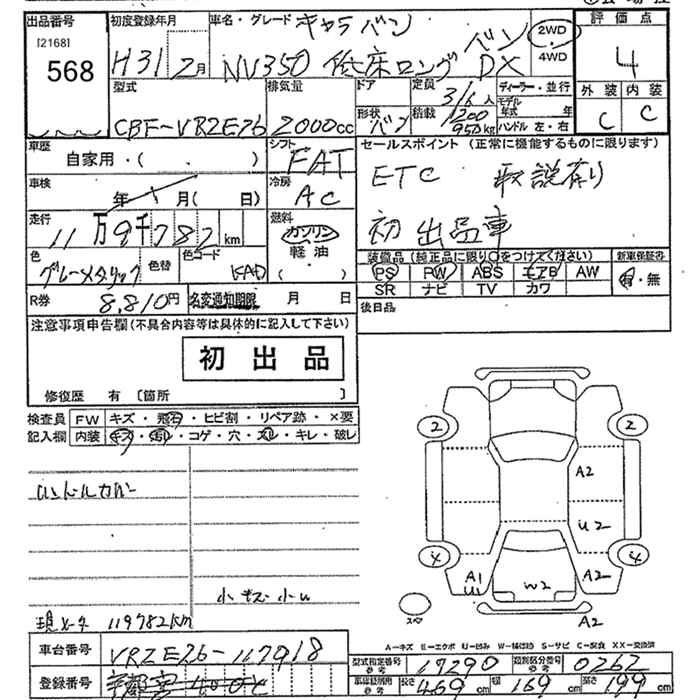 出品番号 初度登録年月 車名・グレード キャラバン 評価点
[2168] 568 H31 2月 NV350 低床ロング バン DX 2WD 4WD 4
型式 排気量 ドア 定員 3/6人 ディーラー・並行 外装 内装
CBF-VR2E26 2000cc 形状 バン 積載 1200 950kg モデル年式 年 ハンドル 左・右 C C
車歴 自家用・( ) シフト FAT セールスポイント (正常に機能するものに限ります)
車検 年 月( 日) 冷房 AC ETC 取説有り
走行 11万9千782km 燃料 ガソリン 軽油 ( ) 初出品車
色 グレーメタリック 色替 色コード KAD 装備品 (純正品に限り○をつけてください) 新車保証書
PS PW ABS エアB AW 有・無
SR ナビ TV カワ
R券 8,810円 名変通知期限 月 日 後日品
注意事項申告欄(不具合内容等は具体的に記入して下さい)
初出品
修復歴 有 [箇所 ]
検査員 FW キズ・飛石・ヒビ割・リペア跡・×要
記入欄 内装 キズ・汚れ・コゲ・穴・スレ・キレ・破レ
2 2
A2
ハンドルカバー
U2
4 4
A1 A2
W2
小キズ小U
A2
現メータ 119782km
A-キズ E-エクボ U-凹み W-補修跡 S-サビ C-腐食 XX-交換済
車台番号 VR2E26-117918 型式指定番号 参考 17290 類別区分番号 参考 0262
登録番号 車庫証明用 参考 長さ 469cm 幅 169cm 高さ 199cm